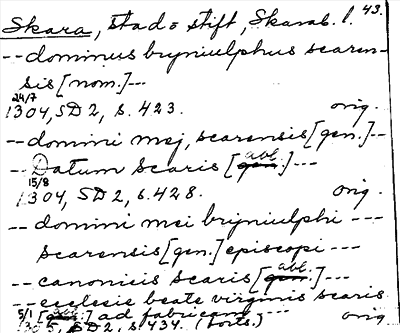 Skara, stad o stift, Skarab. l. 43.
-- dominus bryniulphus scaren-
sis [nom.] ---
24/7
1304, SD 2, s. 423. orig.
-- domini mej, scarensis [gen.] --
-- Datum scaris [abl.] ---
15/8
1304, SD 2, s. 428. orig.
-- domini mei brijniulphi ---
scarensis [gen.] episcopi ---
-- canonicis scaris [abl.] ---
-- ecclesie beate virginis scaris
[abl.] ad fabricam ---
5/1
1305, SD 2, s. 434. (forts.) orig.